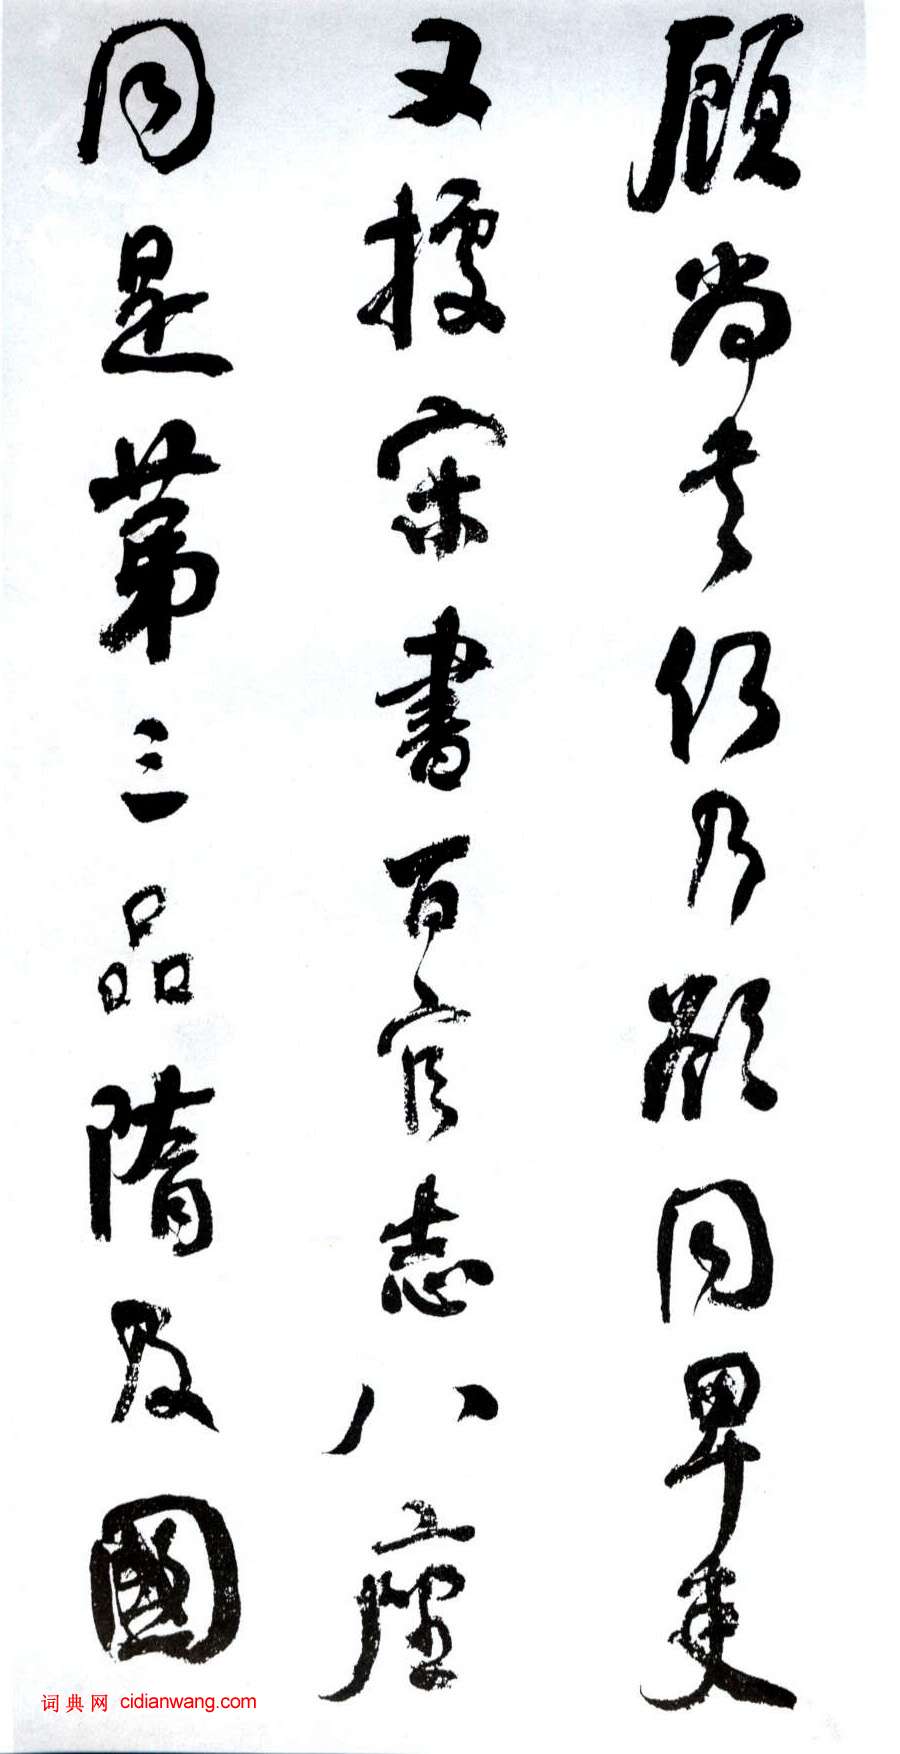 顧尚書何乃欲同卑吏
又據宋書百官志八座
同是第三品隋及國
词典网 cidianwang.com